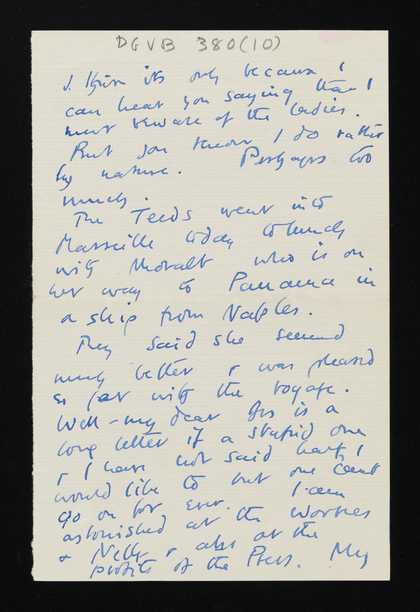 DGVB 380(10)
I think its only because I
can hear you saying that I
must beware of the ladies.
But you know I do rather
by nature. Perhaps too
much.
The Teeds went into
Marseille today to lunch
with who is on
her way to Panama in
a ship from Naples.
They said she seemed
much better & was pleased
so far with the voyage.
Well - my dear this is a
long letter if a stupid one
& I have not said half I
would like to but one cant
go on for ever. I am
astonished at the worries
& Nelly & also at the
profits of the Press. My